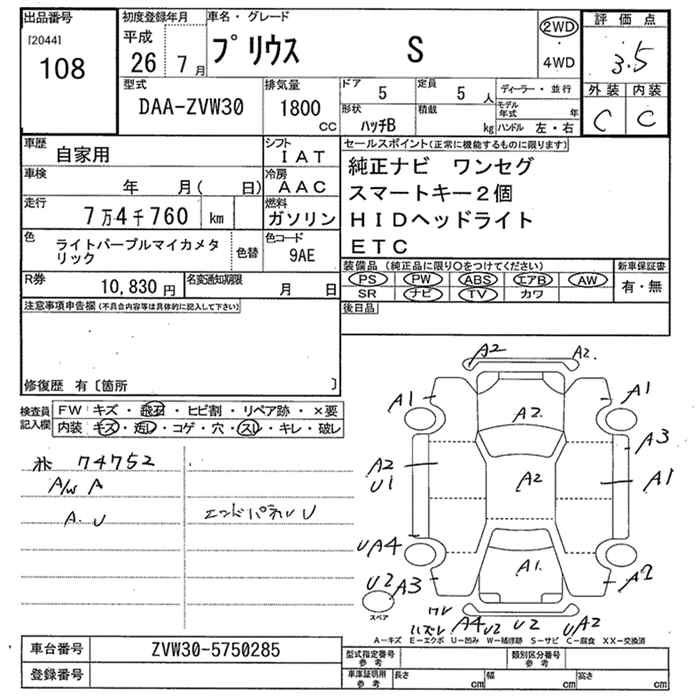 出品番号
[2044]
108
初度登録年月
平成
26 7 月
車名・グレード
プリウス S
2WD
・
4WD
評価点
3.5
外装 内装
C C
型式
DAA-ZVW30
排気量
1800
CC
ドア
5
定員
5 人
形状
ハッチB
積載
kg
ディーラー・並行
モデル年式 年
ハンドル 左・右
車歴
自家用
シフト
IAT
車検
年 月( 日)
冷房
AAC
走行
7万4千760 km
燃料
ガソリン
色
ライトパープルマイカメタリック
色替
色コード
9AE
R券
10,830 円
名変通知期限
月 日
セールスポイント(正常に機能するものに限ります)
純正ナビ ワンセグ
スマートキー2個
HIDヘッドライト
ETC
装備品(純正品に限り○をつけてください)
PS PW ABS エアB AW
SR ナビ TV カワ
新車保証書
有・無
後日品
注意事項申告欄(不具合内容等は具体的に記入して下さい)
修復歴 有〔箇所 〕
検査員記入欄
FW キズ・飛石・ヒビ割・リペア跡・×要
内装 キズ・汚レ・コゲ・穴・スレ・キレ・破レ
74752
A/W A
A.U
エンドパネルU
A2 A2.
A1 A1
A2.
A3
A2
U1
A2
A1
UA4
U2 A3
A1.
A2
スペア
ワレ
ハズレ
A4 U2 U2 UA2
A-キズ E-エクボ U-凹み W-補修跡 S-サビ C-腐食 XX-交換済
車台番号
ZVW30-5750285
登録番号
型式指定番号
参考
類別区分番号
参考
車庫証明用
参考
長さ cm
幅 cm
高さ cm